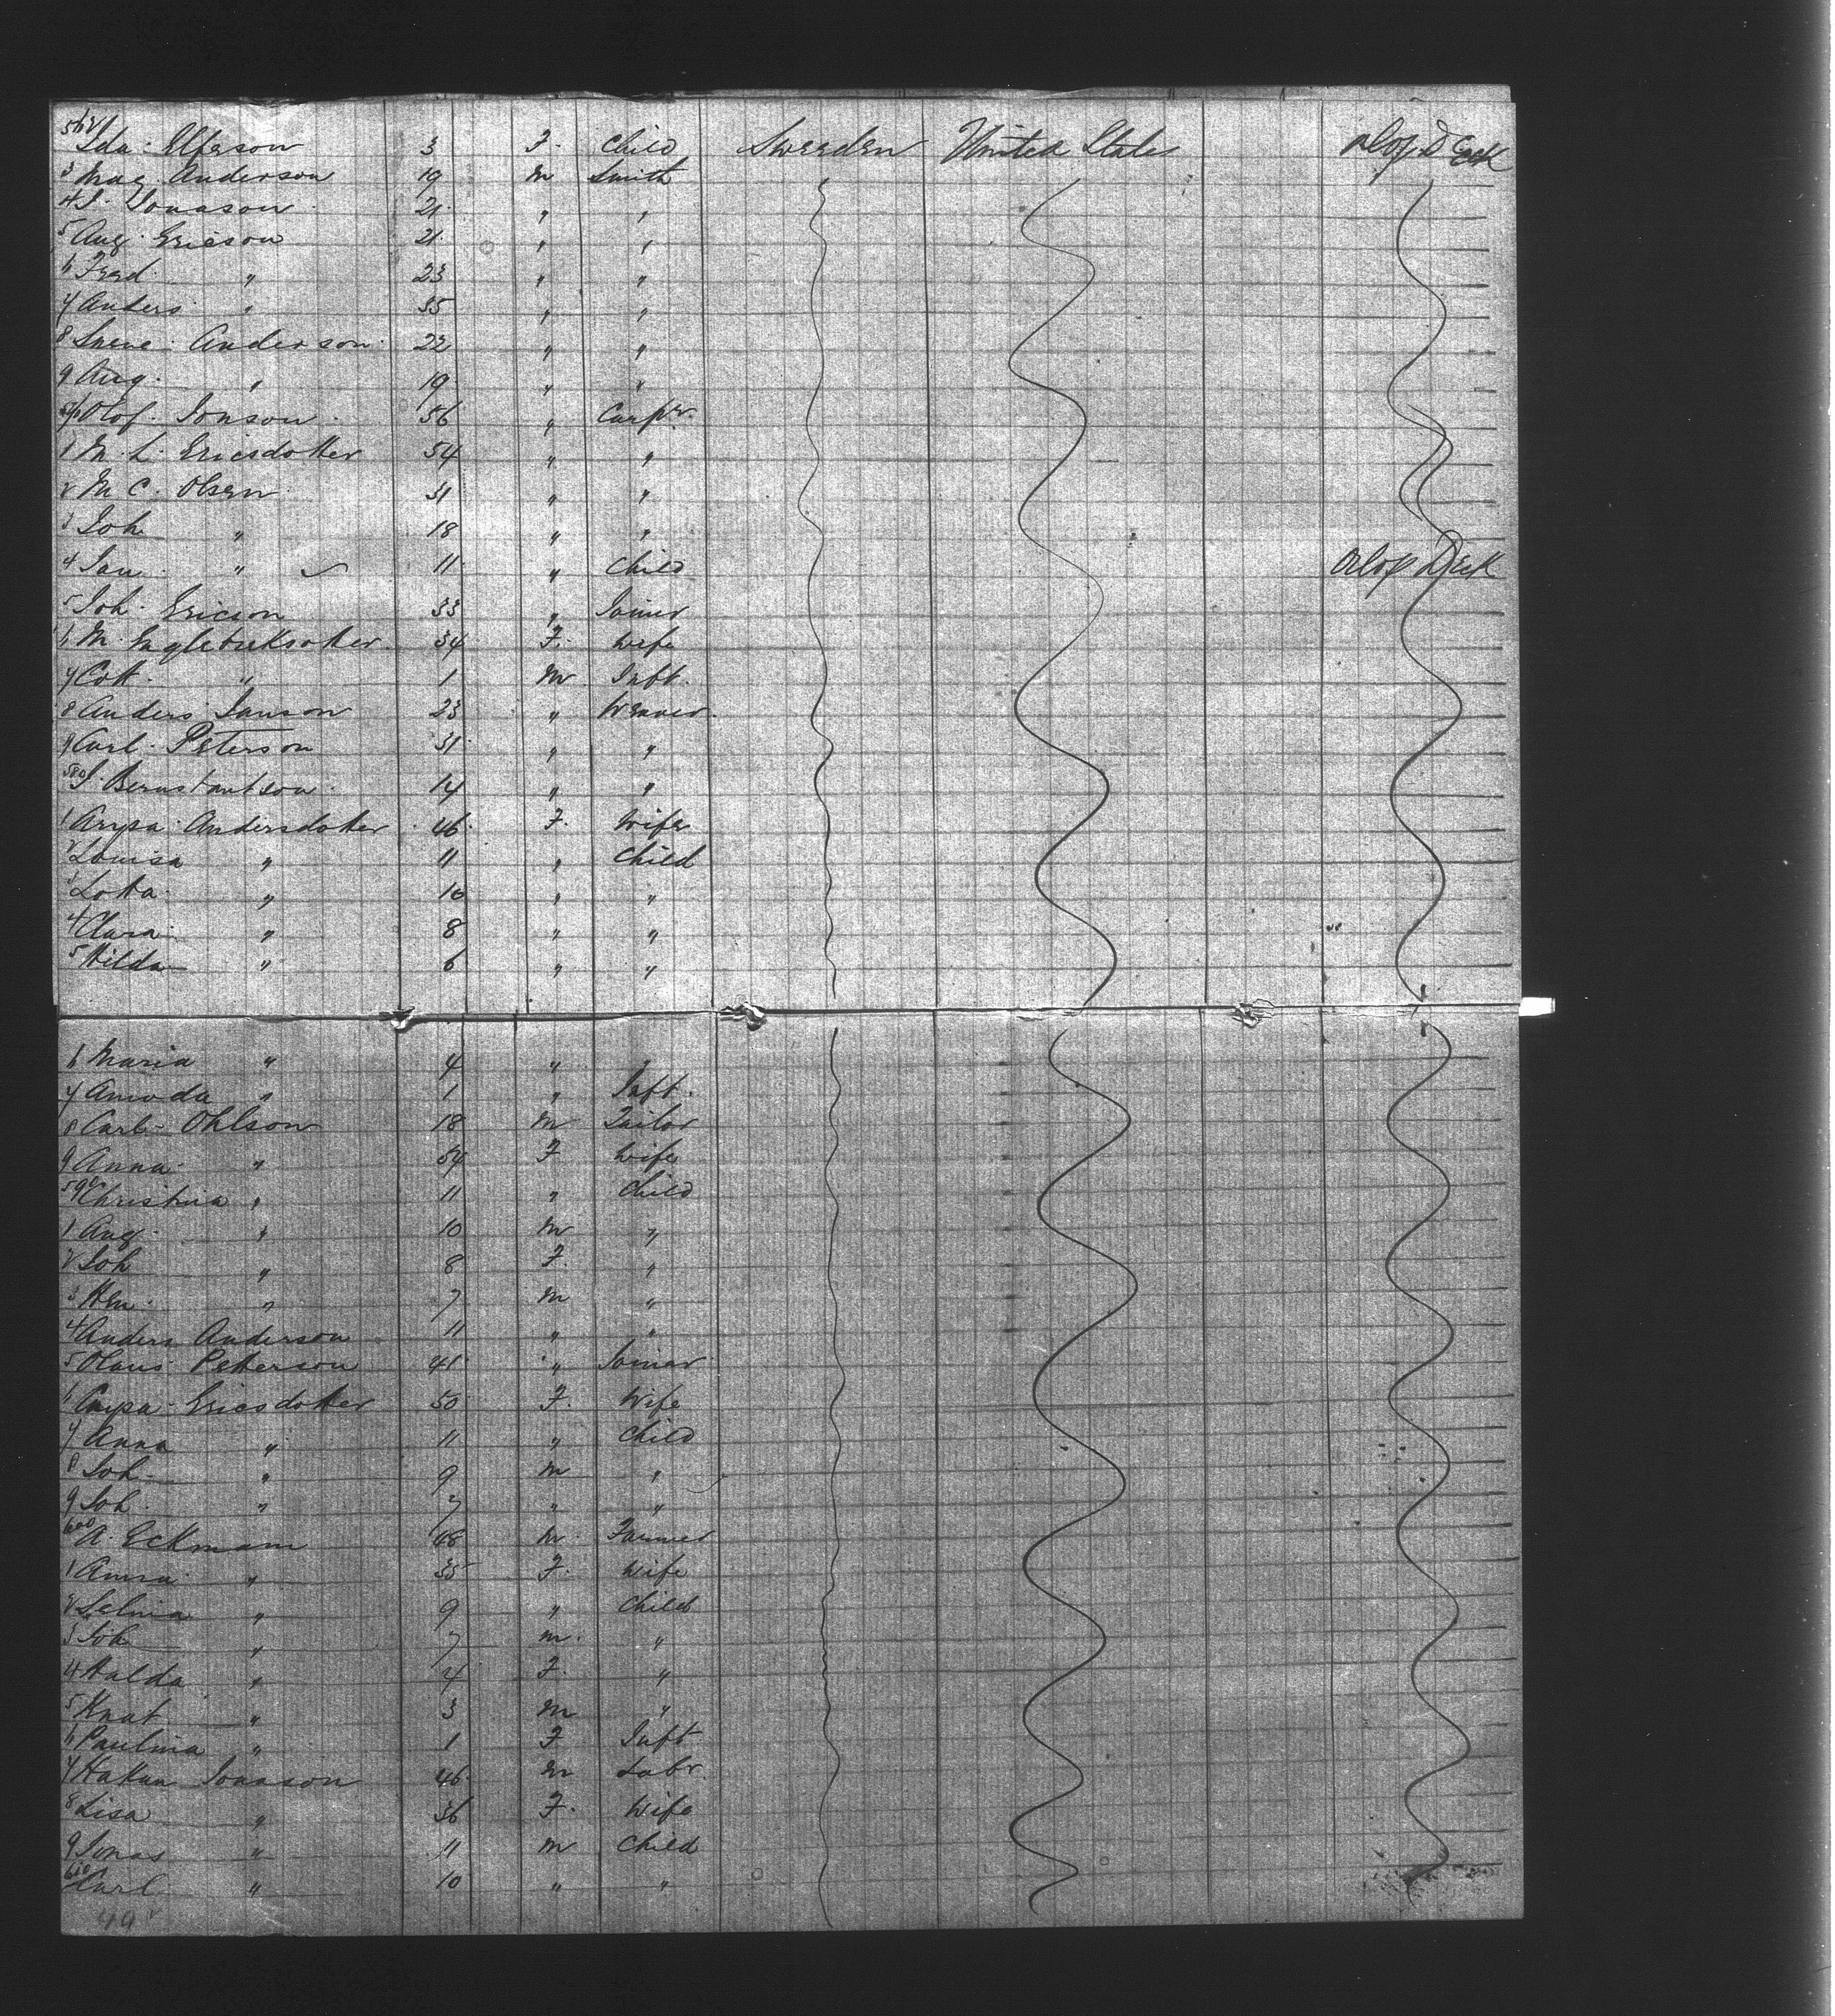 562 Ida Elferson 3 F. Child Sweeden United States Orlop Deck
3 Mag. Anderson 19 M Smith
4 J. Jonason 21 " "
5 Aug. Ericson 21 " "
6 Fred. " 23 " "
7 Anders " 35 " "
8 Anderson 22 " "
9 Aug. " 19 " "
570 Olof Jonson 56 " Carpr.
1 M. L. Ericsdotter 54 " "
2 M. C. Olsen 31 " "
3 Joh " 18 " "
4 Jan " 11 " Child Orlop Deck
5 Joh. Ericson 33 " Joiner
6 M. 34 F. Wife
7 " 1 M Inft.
8 Anders Janson 23 " Weaver
9 Carl Peterson 31 " "
580 J. 14 " "
1 Andersdotter 46 F. Wife
2 Louisa " 11 " Child
3 Lotta " 10 " "
4 Clara " 8 " "
5 Hilda " 6 " "
6 Maria " 4 "
7 Amoda " 1 " Inft.
8 Carl Ohlson 18 M Tailor
9 Anna " 54 F Wife
590 Christina " 11 " Child
1 Aug. " 10 M "
2 Joh " 8 F. "
3 " 7 M "
4 Anders Anderson 11 " "
5 Olaus Petterson 41 " Joiner
6 Ericsdotter 50 F. Wife
7 Anna " 11 " Child
8 Joh. " 9 M "
9 Joh. " 7 " "
600 A. Eckmann 48 M. Farmer
1 Anna " 35 F. Wife
2 Selma " 9 " Child
3 Joh " 7 M. "
4 Halda " 4 F. "
5 Knut " 3 M "
6 Paulina " 1 F Inft
7 Hakan Jonason 46 M Labr.
8 Lisa " 36 F. Wife
9 Jonas " 11 M Child
610 Carl " 10 " "